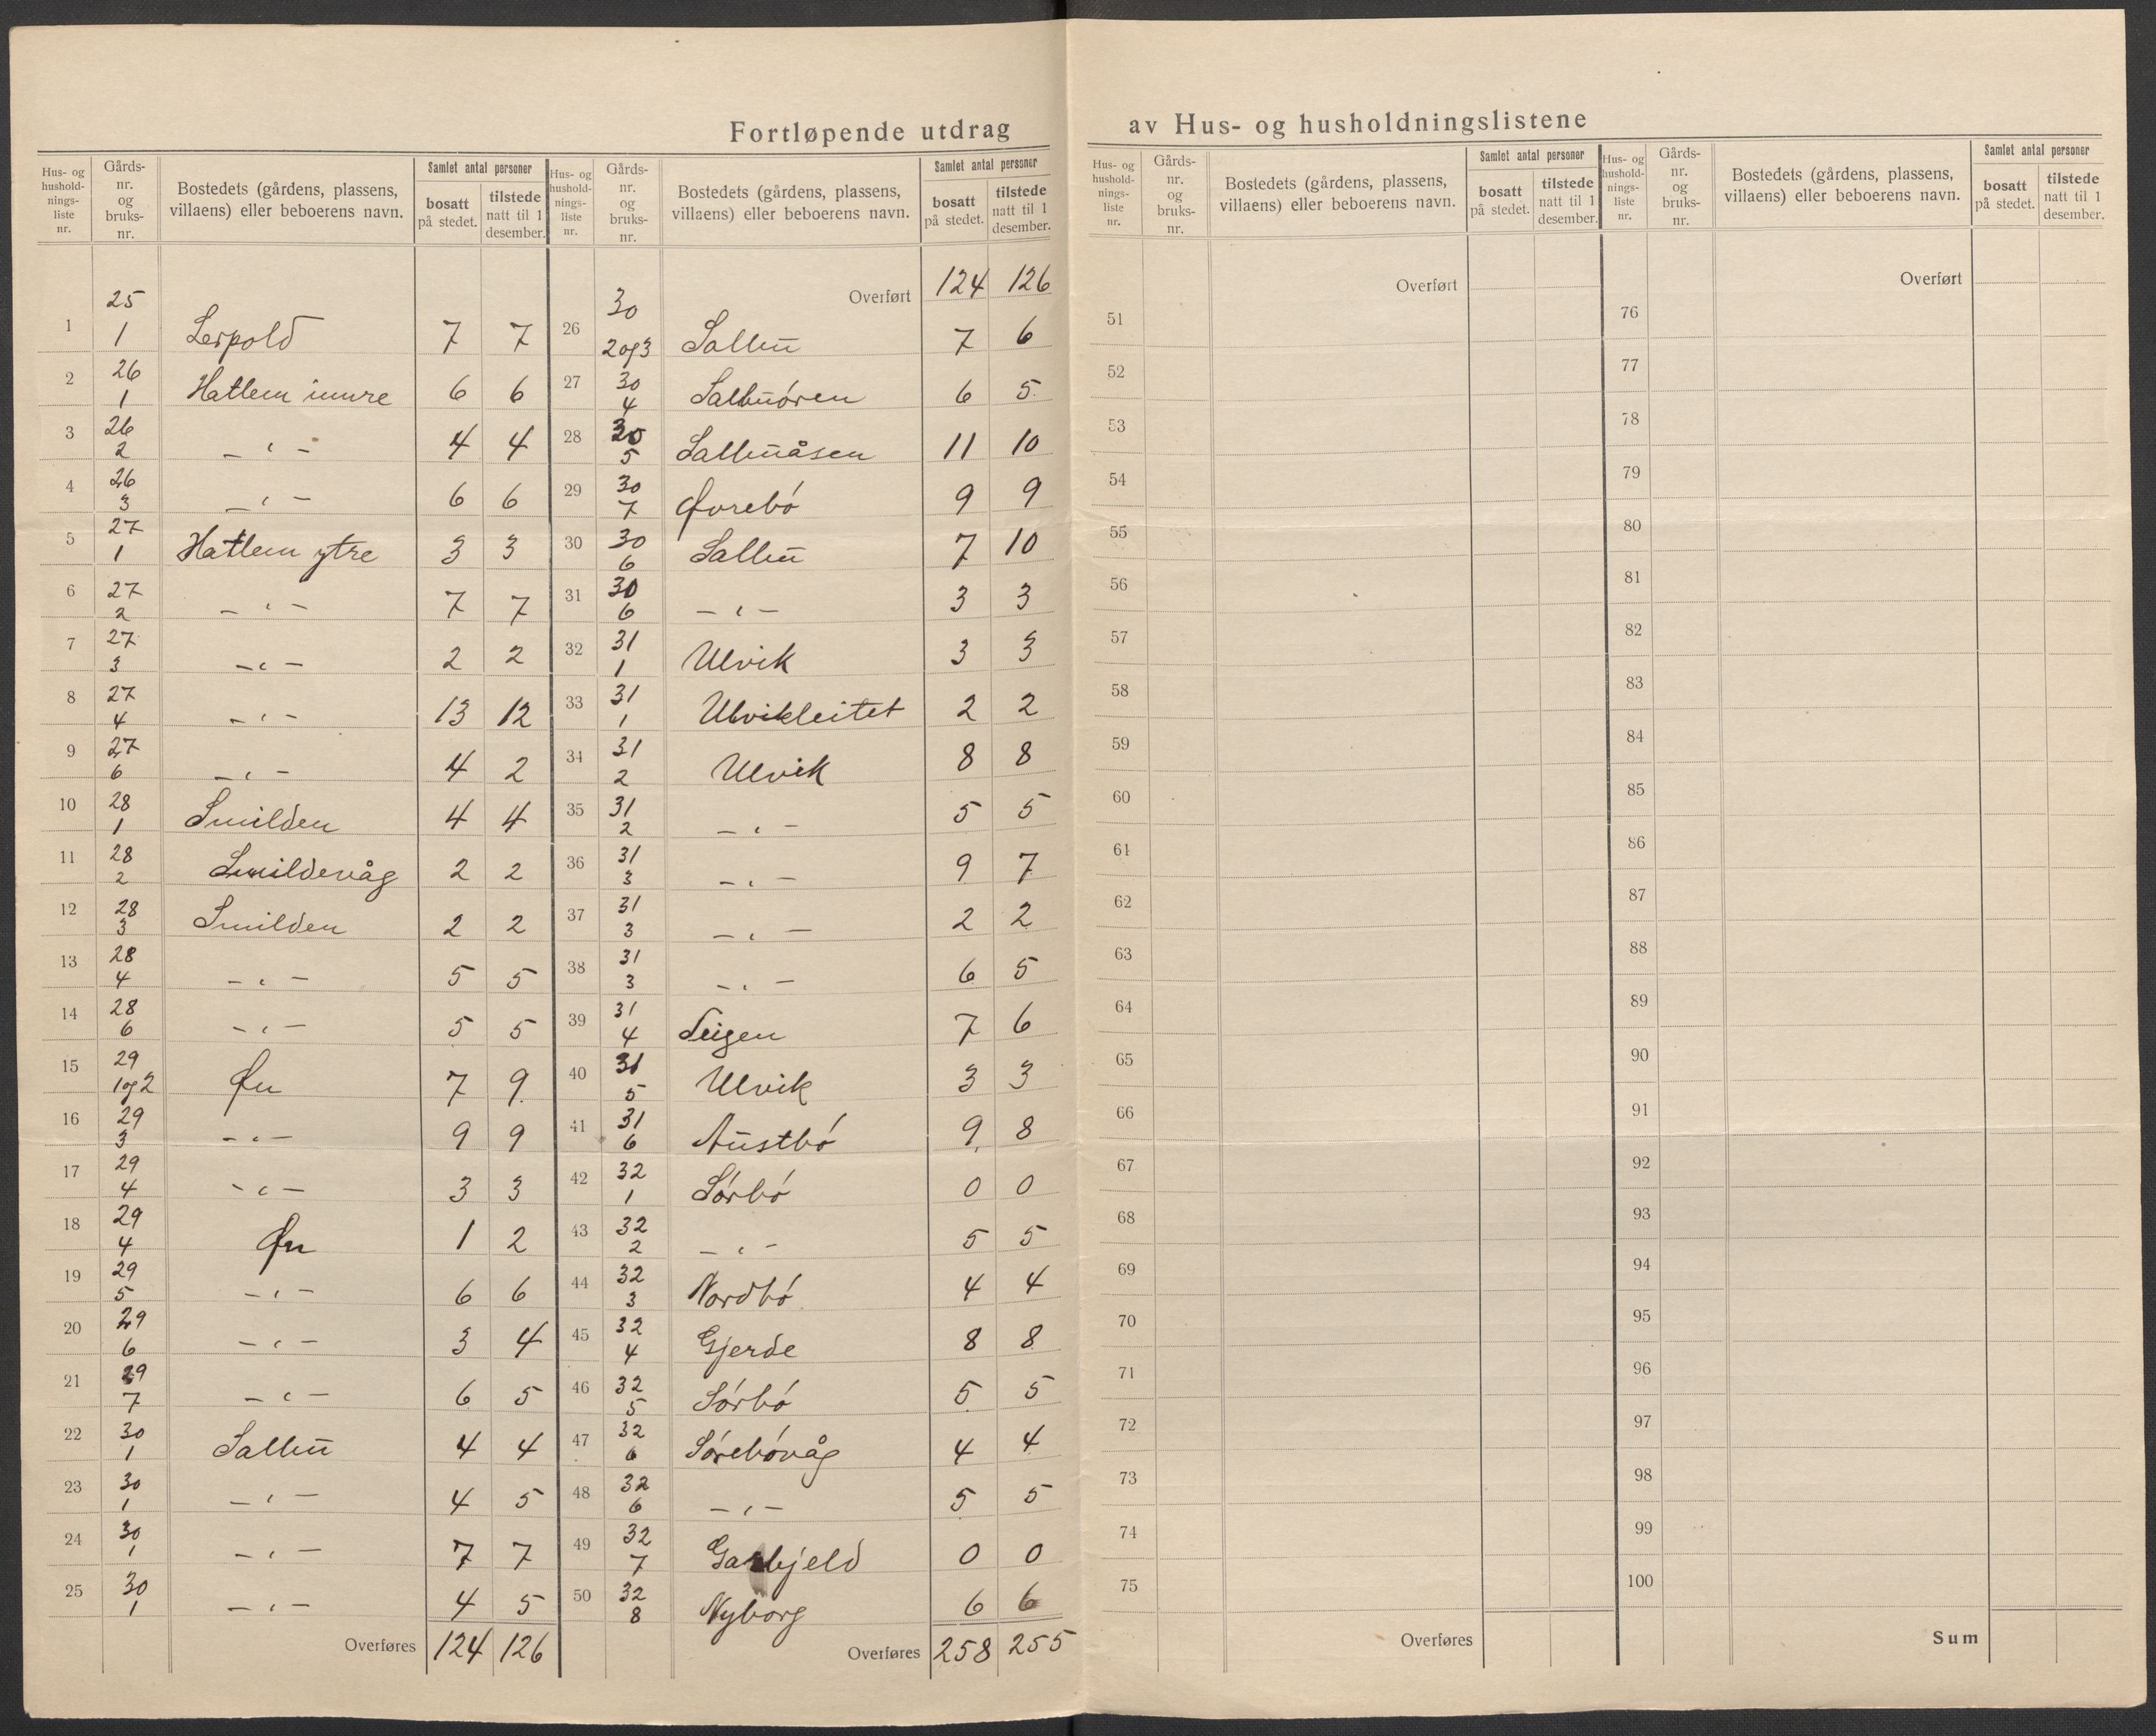 Fortløpende utdrag av Hus- og husholdningslistene
Hus- og hushold-nings-liste nr. | Gårds-nr. og bruks-nr. | Bostedets (gårdens, plassens, villaens) eller beboerens navn. | Samlet antal personer | bosatt på stedet. | tilstede natt til 1 desember.
1 25 1 Leopold 7 7
2 26 1 Hatlem innre 6 6
3 26 2 — " — 4 4
4 26 3 — " — 6 6
5 27 1 Hatlem ytre 3 3
6 27 2 — " — 7 7
7 27 3 — " — 2 2
8 27 4 — " — 13 12
9 27 6 — " — 4 2
10 28 1 Smilden 4 4
11 28 2 Smildevåg 2 2
12 28 3 Smilden 2 2
13 28 4 — " — 5 5
14 28 6 — " — 5 5
15 29 1 og 2 Øn 7 9
16 29 3 — " — 9 9
17 29 4 — " — 3 3
18 29 4 Øn 1 2
19 29 5 — " — 6 6
20 29 6 — " — 3 4
21 29 7 — " — 6 5
22 30 1 Salbu 4 4
23 30 1 — " — 4 5
24 30 1 — " — 7 7
25 30 1 — " — 4 5
Overføres 124 126
Hus- og hushold-nings-liste nr. | Gårds-nr. og bruks-nr. | Bostedets (gårdens, plassens, villaens) eller beboerens navn. | Samlet antal personer | bosatt på stedet. | tilstede natt til 1 desember.
Overført 124 126
26 30 2 og 3 Salbu 7 6
27 30 4 Salbuøren 6 5
28 30 5 Salbuåsen 11 10
29 30 7 Øvrebó 9 9
30 30 6 Salbu 7 10
31 30 6 — " — 3 3
32 31 1 Ulvik 3 3
33 31 1 Ulvikleitet 2 2
34 31 2 Ulvik 8 8
35 31 2 — " — 5 5
36 31 3 — " — 9 7
37 31 3 — " — 2 2
38 31 3 — " — 6 5
39 31 4 Teigen 7 6
40 31 5 Ulvik 3 3
41 31 6 Austbó 9 8
42 32 1 Sórbó 0 0
43 32 2 — " — 5 5
44 32 3 Nordbó 4 4
45 32 4 Gjerde 8 8
46 32 5 Sórbó 5 5
47 32 6 Sórebóvåg 4 4
48 32 6 — " — 5 5
49 32 7 0 0
50 32 8 Nyborg 6 6
Overføres 258 255
Hus- og hushold-nings-liste nr. | Gårds-nr. og bruks-nr. | Bostedets (gårdens, plassens, villaens) eller beboerens navn. | Samlet antal personer | bosatt på stedet. | tilstede natt til 1 desember.
Overført
51
52
53
54
55
56
57
58
59
60
61
62
63
64
65
66
67
68
69
70
71
72
73
74
75
Overføres
Hus- og hushold-nings-liste nr. | Gårds-nr. og bruks-nr. | Bostedets (gårdens, plassens, villaens) eller beboerens navn. | Samlet antal personer | bosatt på stedet. | tilstede natt til 1 desember.
Overført
76
77
78
79
80
81
82
83
84
85
86
87
88
89
90
91
92
93
94
95
96
97
98
99
100
Sum